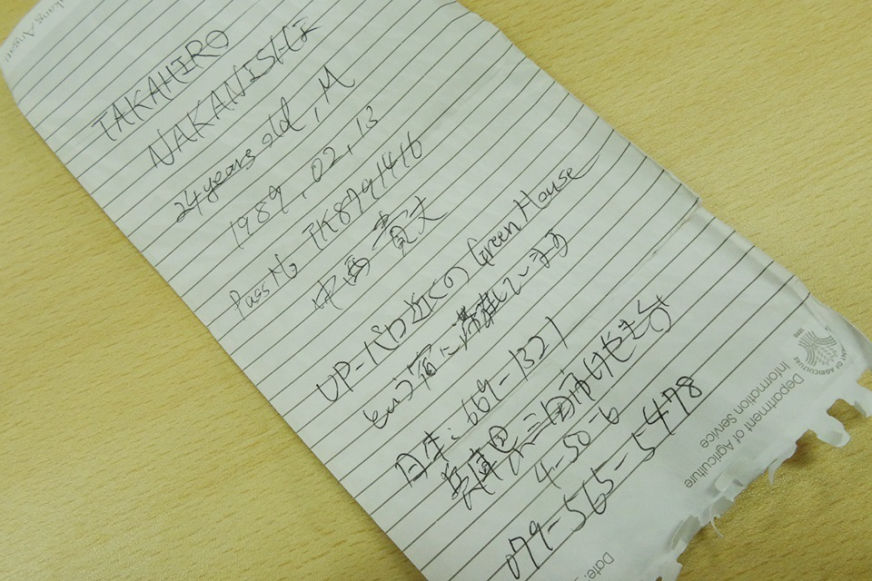 TAKAHIRO
NAKANISHI
24 years old, M
1989, 02, 13
Pass No TK8791416
中西 貴大
UP-ペロ近くの Green House
という宿に滞在しています
日本: 669-1321
兵庫県三田市けやき台
4-50-6
079-565-5478
Department of Agriculture
Information Service
Date: